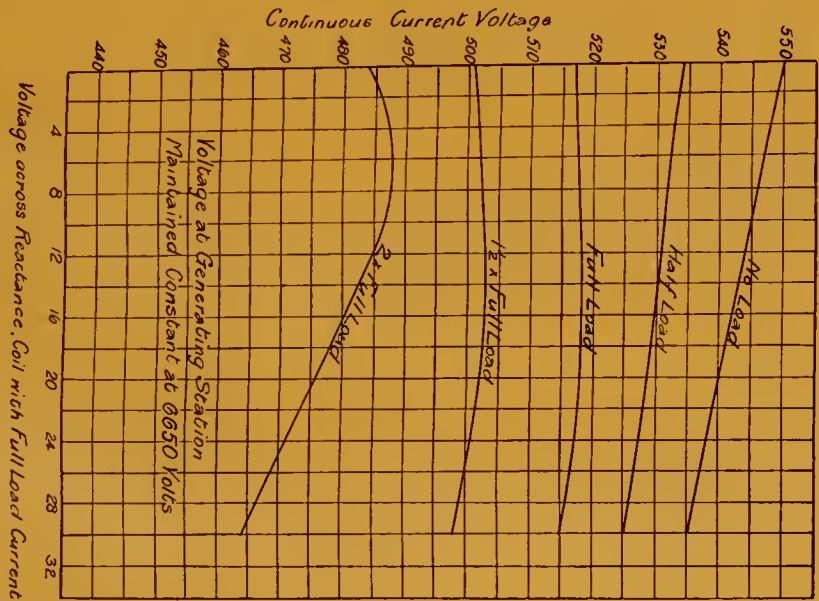 Continuous Current Voltage
440 450 460 470 480 490 500 510 520 530 540 550
4
8
12
16
20
24
28
32
Voltage across Reactance. Coil with Full Load Current
Voltage at Generating Station
Maintained Constant at 6650 Volts
2 x Full Load
1½ x Full Load
Full Load
Half Load
No Load